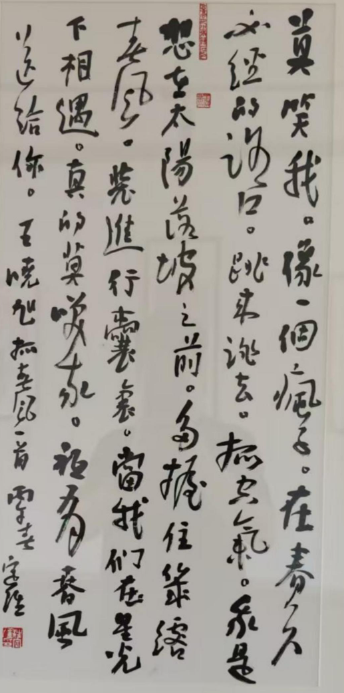 莫笑我。像一個瘋子。在春天
必經的路口。跳來跳去。抓空氣。我是
想在太陽落坡之前。多握住幾縷
春風。裝進行囊裏。當我們在星光
下相遇。真的莫笑我。祇有春風
送給你。王曉旭抓春風一首